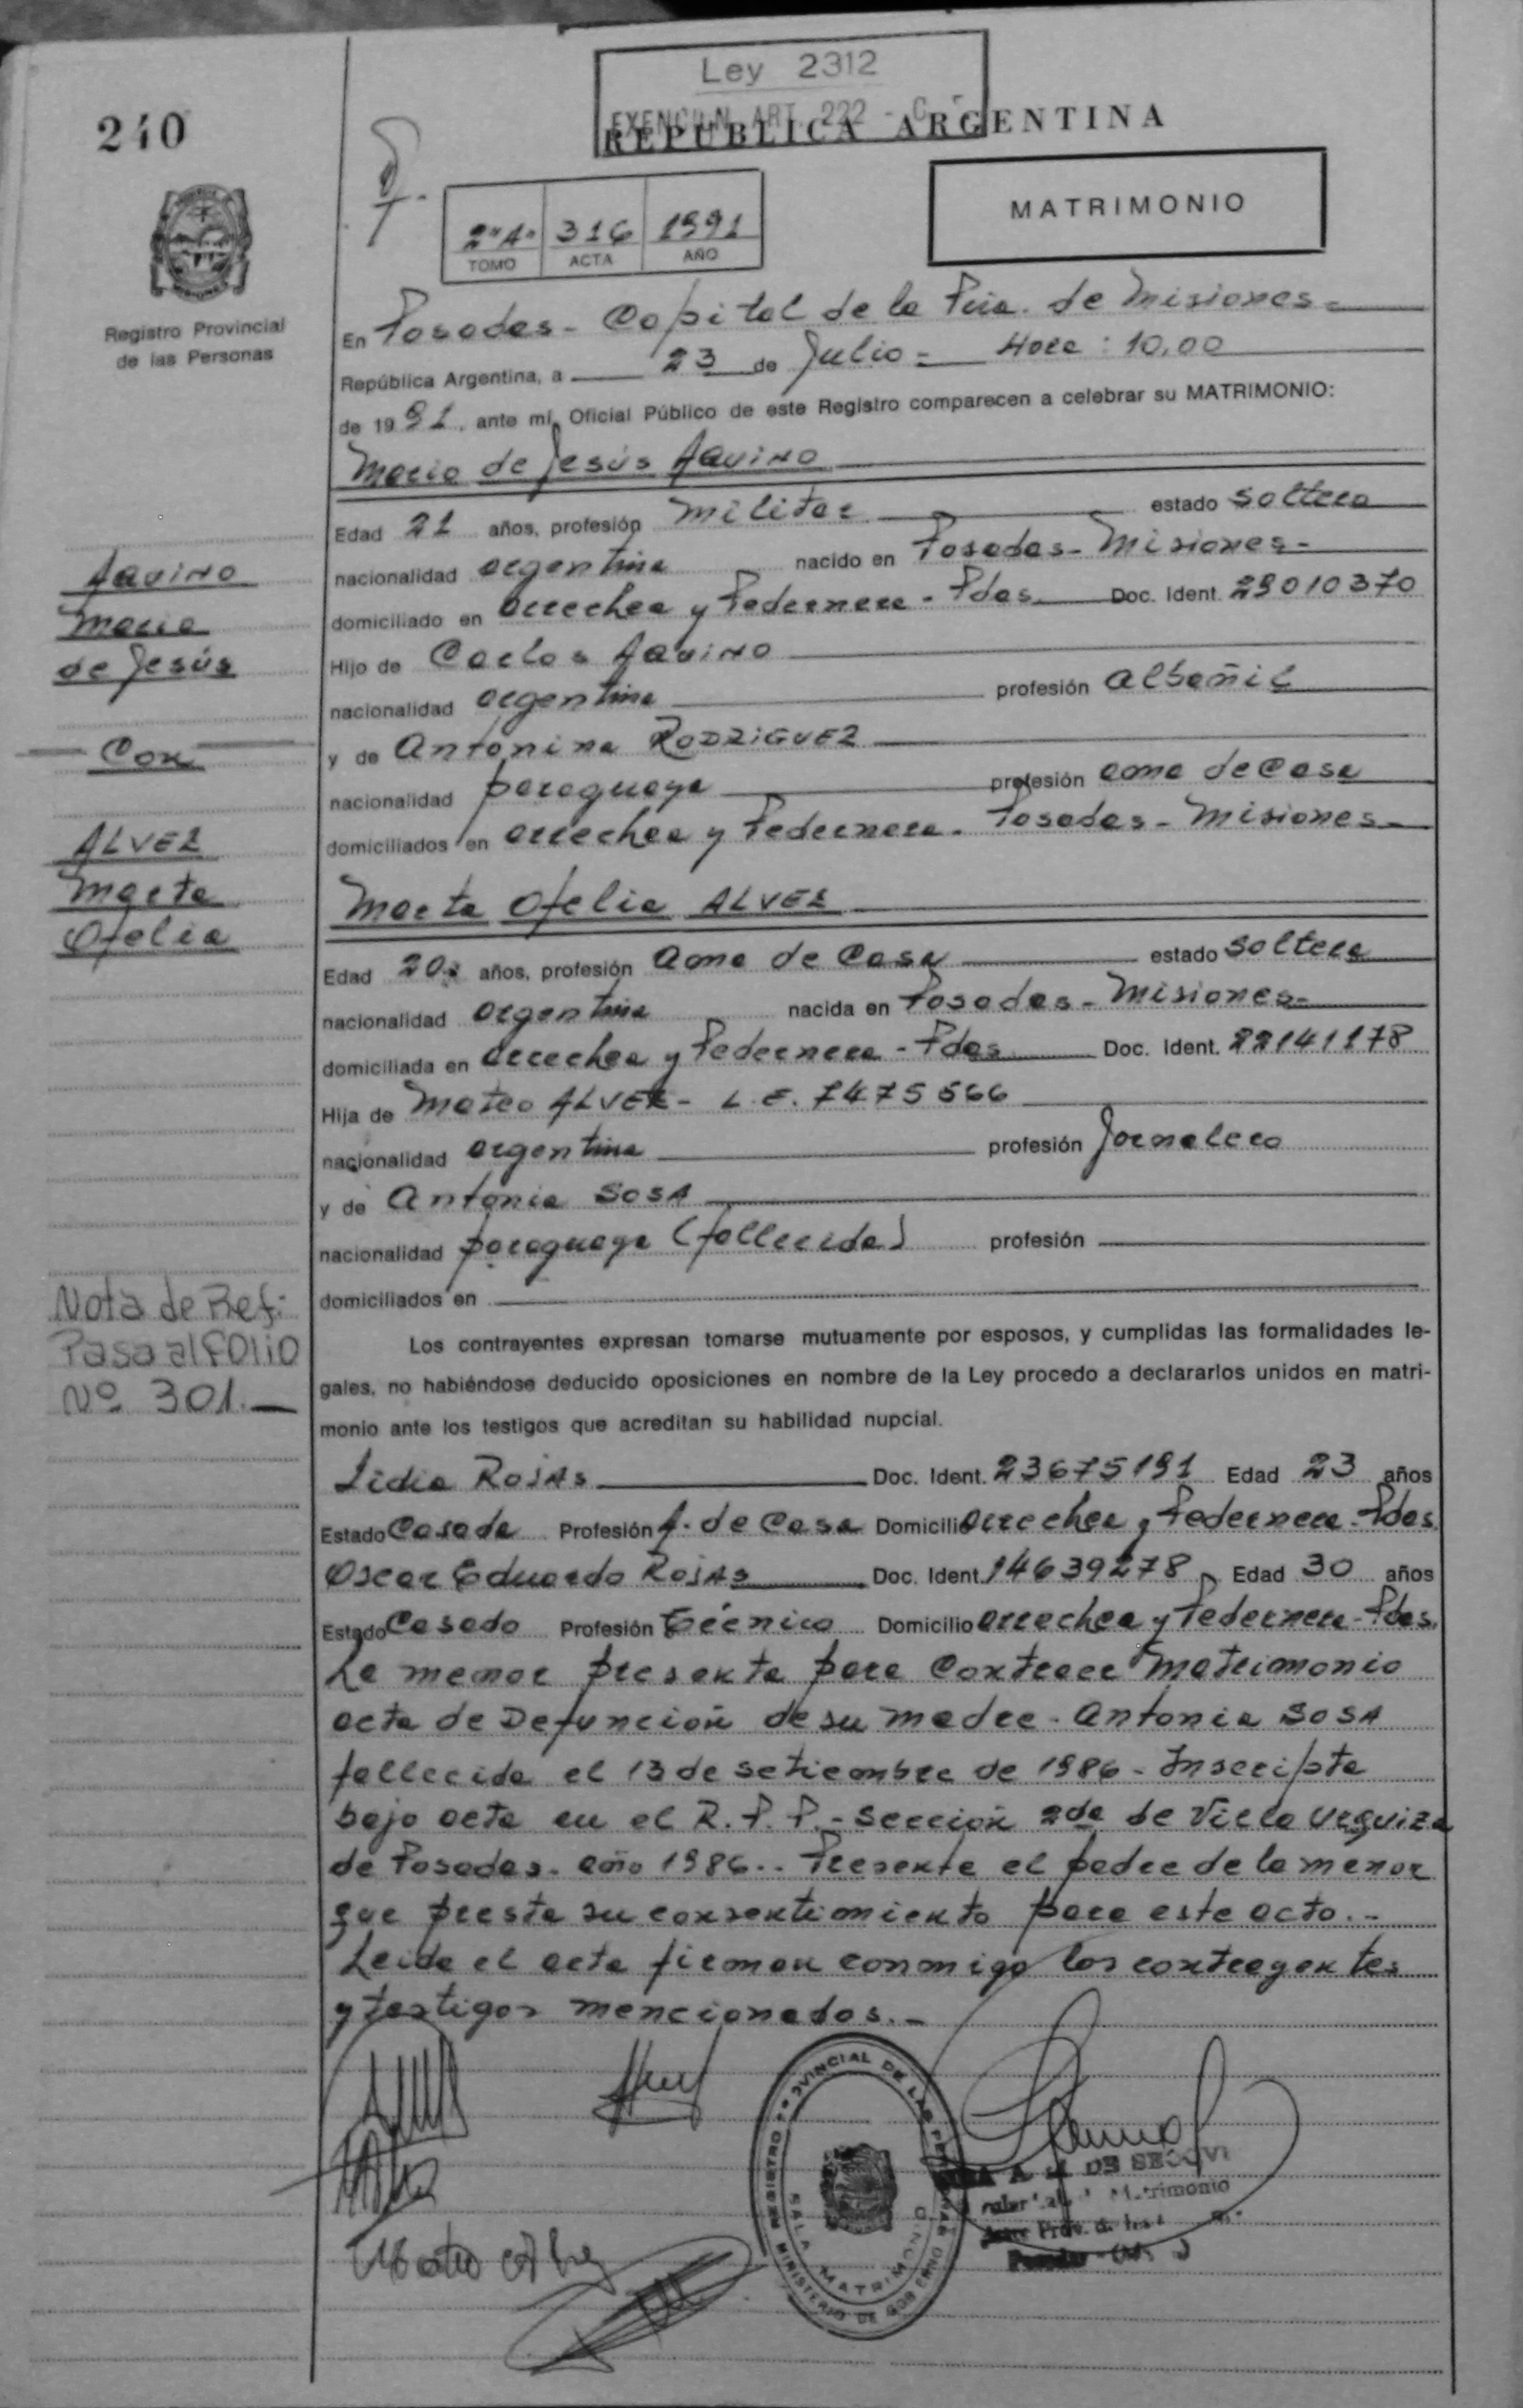 Ley 2312
EXENCION ART. 222 - C.
240
REPUBLICA ARGENTINA
MATRIMONIO
2"A" 316 1991
TOMO ACTA AÑO
Registro Provincial
de las Personas
En Posadas - Capital de la Pcia. de Misiones -
República Argentina, a 23 de Julio - Hora: 10,00
de 1991, ante mí, Oficial Público de este Registro comparecen a celebrar su MATRIMONIO:
Mario de Jesús AQUINO
Edad 21 años, profesión Militar estado Soltero
nacionalidad argentina nacido en Posadas - Misiones -
domiciliado en Arrechea y Pedernera - Pdas Doc. Ident. 29010370
Hijo de Carlos AQUINO
nacionalidad argentina profesión albañil
y de Antonina RODRIGUEZ
nacionalidad paraguaya profesión ama de casa
domiciliados en Arrechea y Pedernera - Posadas - Misiones -
Aquino
Mario
de Jesús
Con
ALVEZ
Marta
Ofelia
Marta Ofelia ALVEZ
Edad 20 años, profesión ama de Casa estado soltera
nacionalidad argentina nacida en Posadas - Misiones -
domiciliada en Arrechea y Pedernera - Pdas Doc. Ident. 22141178
Hija de Mateo ALVEZ - L.E. 7475566
nacionalidad argentina profesión Jornalero
y de Antonia SOSA
nacionalidad paraguaya (fallecida) profesión
domiciliados en
Nota de Ref:
Pasa al FOLIO
Nº 301.
Los contrayentes expresan tomarse mutuamente por esposos, y cumplidas las formalidades le-
gales, no habiéndose deducido oposiciones en nombre de la Ley procedo a declararlos unidos en matri-
monio ante los testigos que acreditan su habilidad nupcial.
Lidia ROJAS Doc. Ident. 23675191 Edad 23 años
Estado Casada Profesión A. de Casa Domicilio Arrechea y Pedernera - Pdas
Oscar Eduardo ROJAS Doc. Ident. 14639278 Edad 30 años
Estado Casado Profesión Técnico Domicilio Arrechea y Pedernera - Pdas.
La menor presenta para Contraer Matrimonio
acta de Defunción de su madre - Antonia SOSA
fallecida el 13 de setiembre de 1986 - Inscripta
bajo acta en el R.P.P. - Sección 2da de Villa Urquiza
de Posadas - año 1986.. Presente el padre de la menor
que presta su consentimiento para este acto.-
Leida el acta firman conmigo los contrayentes
y testigos mencionados.-
REGISTRO PROVINCIAL DE LAS PERSONAS
SALA MATRIMONIO
MINISTERIO DE GOBIERNO
DE SEGOVI
Matrimonio